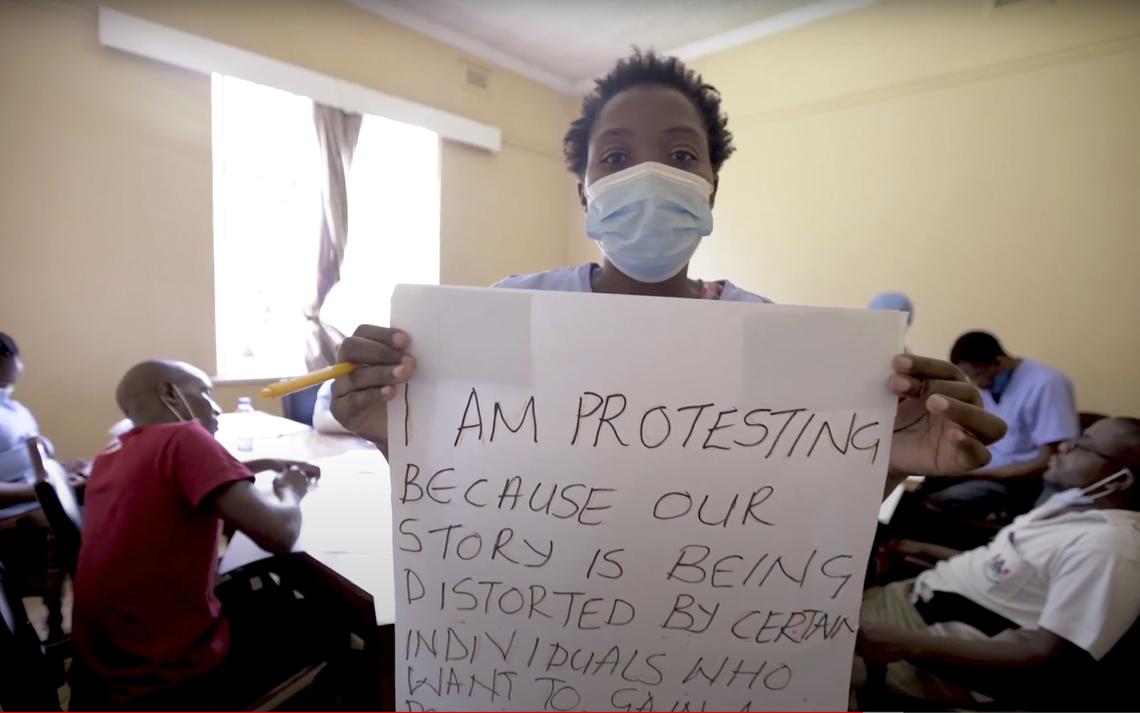 I AM PROTESTING
BECAUSE OUR
STORY IS BEING
DISTORTED BY CERTAIN
INDIVIDUALS WHO
WANT TO GAIN A